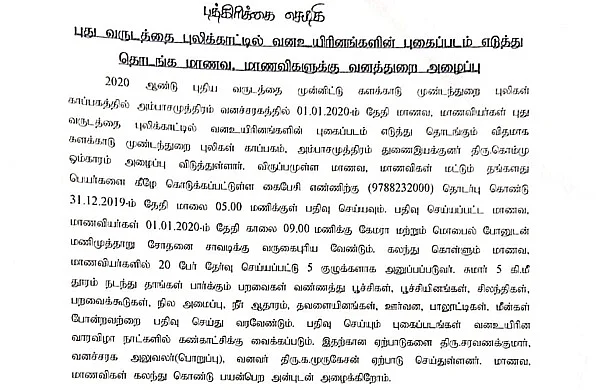 பத்திரிக்கை செய்தி
புது வருடத்தை புலிக்காட்டில் வனஉயிரினங்களின் புகைப்படம் எடுத்து
தொடங்க மாணவ, மாணவிகளுக்கு வனத்துறை அழைப்பு
2020 ஆண்டு புதிய வருடத்தை முன்னிட்டு களக்காடு முண்டந்துறை புலிகள்
காப்பகத்தில் அம்பாசமுத்திரம் வனச்சரகத்தில் 01.01.2020-ம் தேதி மாணவ, மாணவியர்கள் புது
வருடத்தை புலிக்காட்டில் வனஉயிரினங்களின் புகைப்படம் எடுத்து தொடங்கும் விதமாக
களக்காடு முண்டந்துறை புலிகள் காப்பகம், அம்பாசமுத்திரம் துணைஇயக்குனர் திரு.கொம்மு
ஓம்காரம் அழைப்பு விடுத்துள்ளார். விருப்பமுள்ள மாணவ, மாணவிகள் மட்டும் தங்களது
பெயர்களை கீழே கொடுக்கப்பட்டுள்ள கைபேசி எண்ணிற்கு (9788232000) தொடர்பு கொண்டு
31.12.2019-ம் தேதி மாலை 05.00 மணிக்குள் பதிவு செய்யவும். பதிவு செய்யப்பட்ட மாணவ,
மாணவியர்கள் 01.01.2020-ம் தேதி காலை 09.00 மணிக்கு கேமரா மற்றும் மொபைல் போனுடன்
மணிமுத்தாறு சோதனை சாவடிக்கு வருகைபுரிய வேண்டும். கலந்து கொள்ளும் மாணவ,
மாணவியர்களில் 20 பேர் தேர்வு செய்யப்பட்டு 5 குழுக்களாக அனுப்பப்படுவர். சுமார் 5 கி.மீ
தூரம் நடந்து தாங்கள் பார்க்கும் பறவைகள் வண்ணத்து பூச்சிகள், பூச்சியினங்கள், சிலந்திகள்,
பறவைக்கூடுகள், நில அமைப்பு, நீர் ஆதாரம், தவளையினங்கள், ஊர்வன, பாலூட்டிகள், மீன்கள்
போன்றவற்றை பதிவு செய்து வரவேண்டும். பதிவு செய்யும் புகைப்படங்கள் வனஉயிரின
வாரவிழா நாட்களில் கண்காட்சிக்கு வைக்கப்படும். இதற்கான ஏற்பாடுகளை திரு.சரவணக்குமார்,
வனச்சரக அலுவலர்(பொறுப்பு), வனவர் திரு.க.முருகேசன் ஏற்பாடு செய்துள்ளனர். மாணவ,
மாணவிகள் கலந்து கொண்டு பயன்பெற அன்புடன் அழைக்கிறோம்.